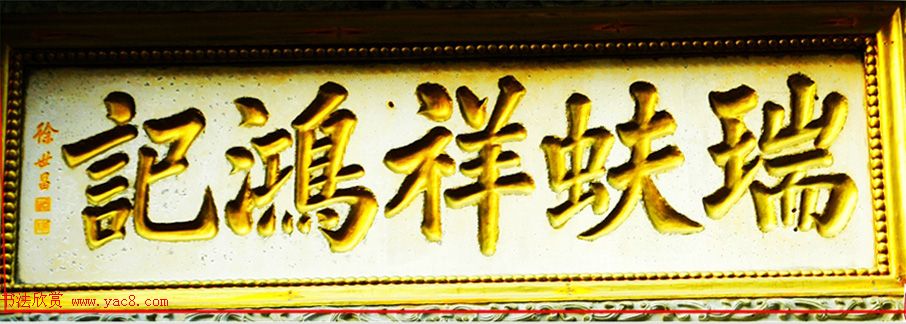 瑞蚨祥鴻記
徐世昌
书法欣赏 www.yac8.com